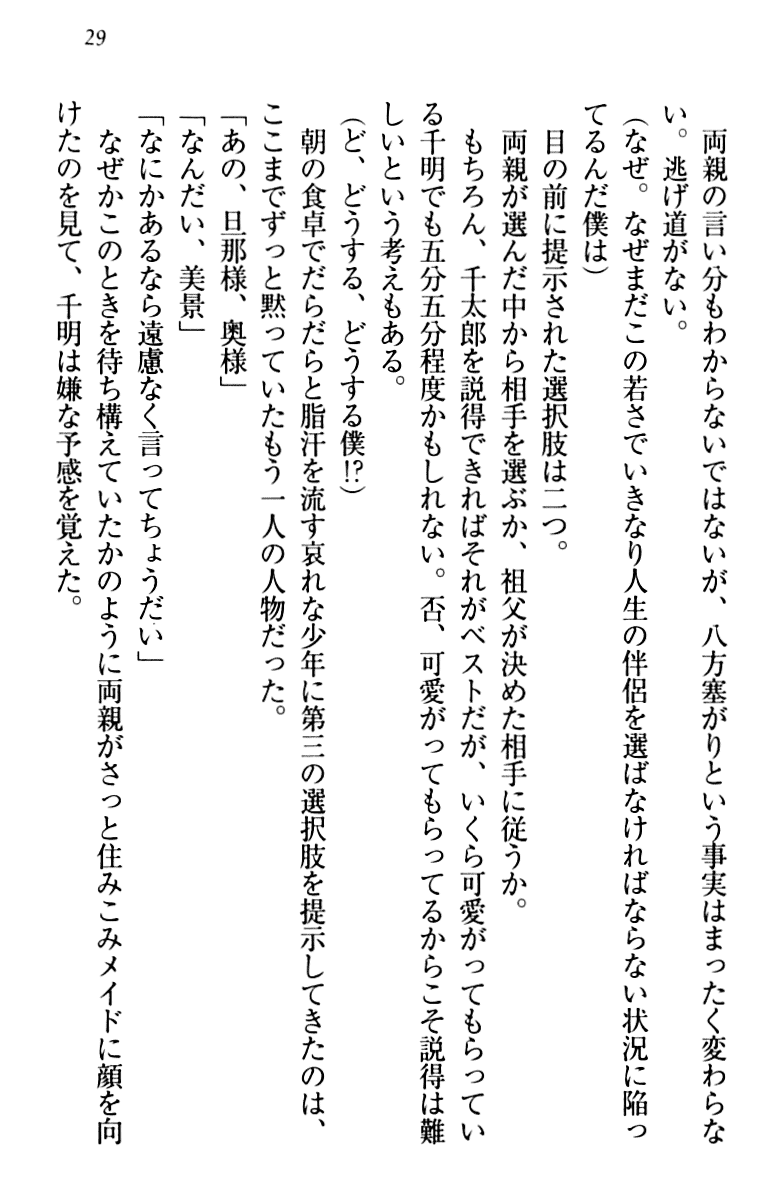 29
　両親の言い分もわからないではないが、八方塞がりという事実はまったく変わらな
い。逃げ道がない。
(なぜ。なぜまだこの若さでいきなり人生の伴侶を選ばなければならない状況に陥っ
てるんだ僕は)
　目の前に提示された選択肢は二つ。
　両親が選んだ中から相手を選ぶか、祖父が決めた相手に従うか。
　もちろん、千太郎を説得できればそれがベストだが、いくら可愛がってもらってい
る千明でも五分五分程度かもしれない。否、可愛がってもらってるからこそ説得は難
しいという考えもある。
(ど、どうする、どうする僕!?)
　朝の食卓でだらだらと脂汗を流す哀れな少年に第三の選択肢を提示してきたのは、
ここまでずっと黙っていたもう一人の人物だった。
「あの、旦那様、奥様」
「なんだい、美景」
「なにかあるなら遠慮なく言ってちょうだい」
　なぜかこのときを待ち構えていたかのように両親がさっと住みこみメイドに顔を向
けたのを見て、千明は嫌な予感を覚えた。